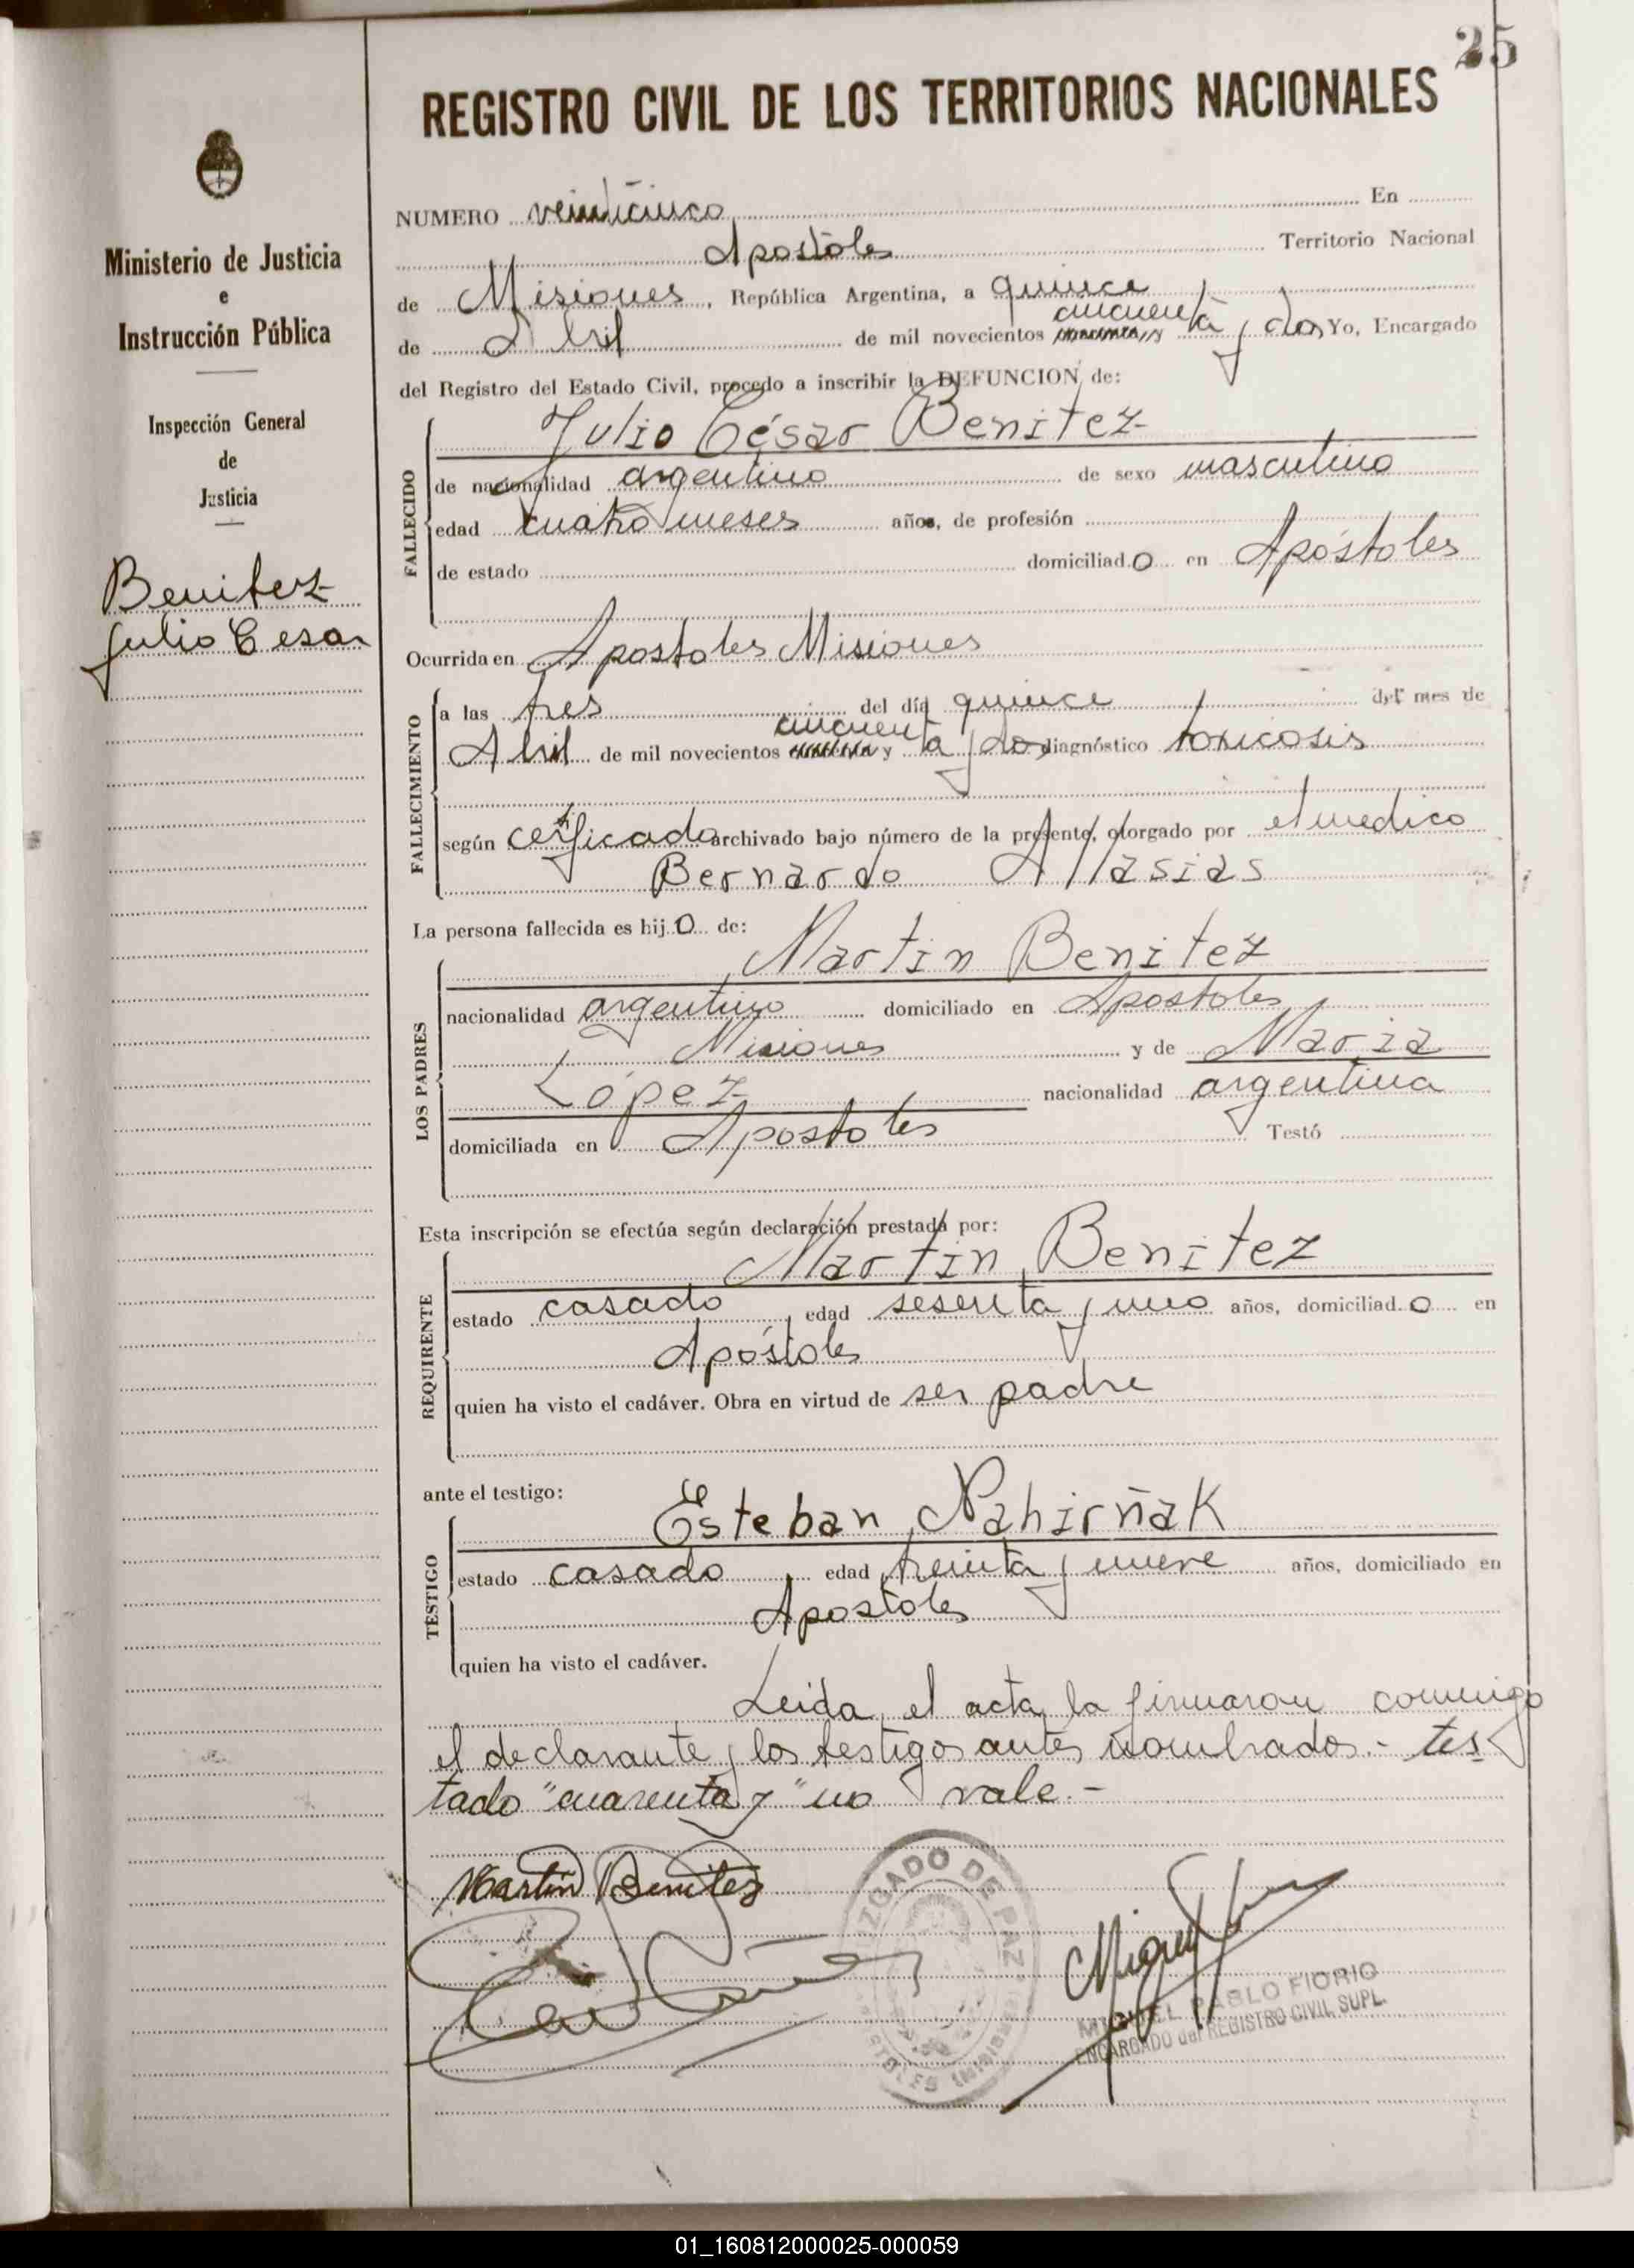 25
REGISTRO CIVIL DE LOS TERRITORIOS NACIONALES
Ministerio de Justicia
e
Instrucción Pública
Inspección General
de
Justicia
Benitez
Julio Cesar
NUMERO veinticinco En
Apostoles Territorio Nacional
de Misiones, República Argentina, a quince
cincuenta
de Abril de mil novecientos y dos Yo, Encargado
del Registro del Estado Civil, procedo a inscribir la DEFUNCION de:
FALLECIDO
Julio César Benitez
de nacionalidad argentino de sexo masculino
edad cuatro meses años, de profesión
de estado domiciliado en Apóstoles
Ocurrida en Apostoles Misiones
FALLECIMIENTO
a las tres del día quince del mes de
cincuenta
Abril de mil novecientos y dos diagnóstico toxicosis
según certificado archivado bajo número de la presente, otorgado por el medico
Bernardo Allasias
La persona fallecida es hijo de:
LOS PADRES
Martin Benitez
nacionalidad argentino domiciliado en Apostoles
Misiones y de Maria
López nacionalidad argentina
domiciliada en Apostoles Testó
Esta inscripción se efectúa según declaración prestada por:
REQUIRENTE
Martin Benitez
estado casado, edad sesenta y uno años, domiciliado en
Apóstoles
quien ha visto el cadáver. Obra en virtud de ser padre
ante el testigo:
TESTIGO
Esteban Nahirñak
estado casado edad treinta y nueve años, domiciliado en
Apostoles
quien ha visto el cadáver.
Leida el acta la firmaron conmigo
el declarante y los testigos antes nombrados.- tes
tado "cuarenta y" no vale.-
Martin Benitez
JUZGADO DE PAZ
APOSTOLES (MISIONES)
Miguel
MIGUEL PABLO FIORIO
ENCARGADO del REGISTRO CIVIL SUPL.
01_160812000025-000059